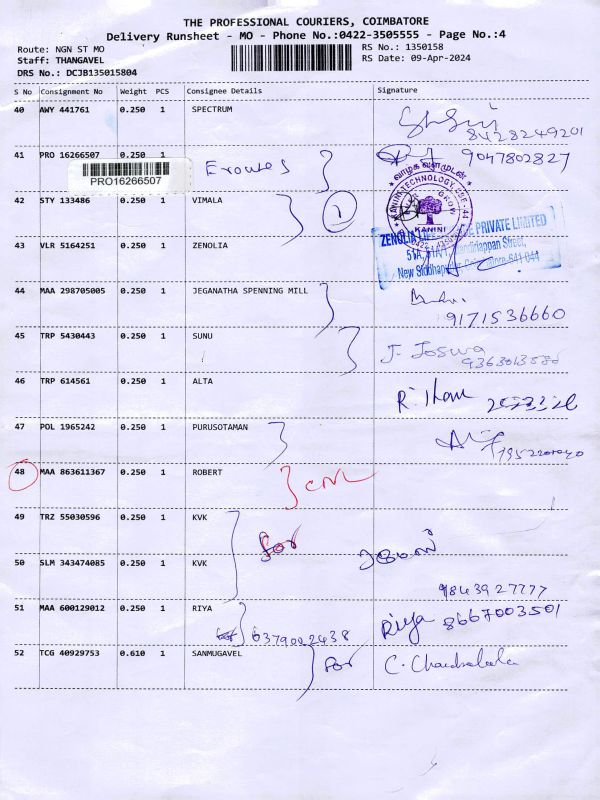 THE PROFESSIONAL COURIERS, COIMBATORE
Delivery Runsheet - MO - Phone No.:0422-3505555 - Page No.:4
Route: NGN ST MO
RS No.: 1350158
Staff: THANGAVEL
RS Date: 09-Apr-2024
DRS No.: DCJB135015804
S No Consignment No Weight PCS Consignee Details Signature
40 AWY 441761 0.250 1 SPECTRUM
8428249201
41 PRO 16266507 0.250 1
9047802827
PRO16266507
வாழக வளமுடன்
KANINI
42 STY 133486 0.250 1 VIMALA
43 VLR 5164251 0.250 1 ZENOLIA
ZENOLIA PRIVATE LIMITED
Street,
44 MAA 298705005 0.250 1 JEGANATHA SPENNING MILL
9171536660
45 TRP 5430443 0.250 1 SUNU
J. Joswa
46 TRP 614561 0.250 1 ALTA
47 POL 1965242 0.250 1 PURUSOTAMAN
48 MAA 863611367 0.250 1 ROBERT
49 TRZ 55030596 0.250 1 KVK
for
50 SLM 343474085 0.250 1 KVK
9843927777
51 MAA 600129012 0.250 1 RIYA
6379002438
Riya 8667003501
52 TCG 40929753 0.610 1 SANMUGAVEL
for